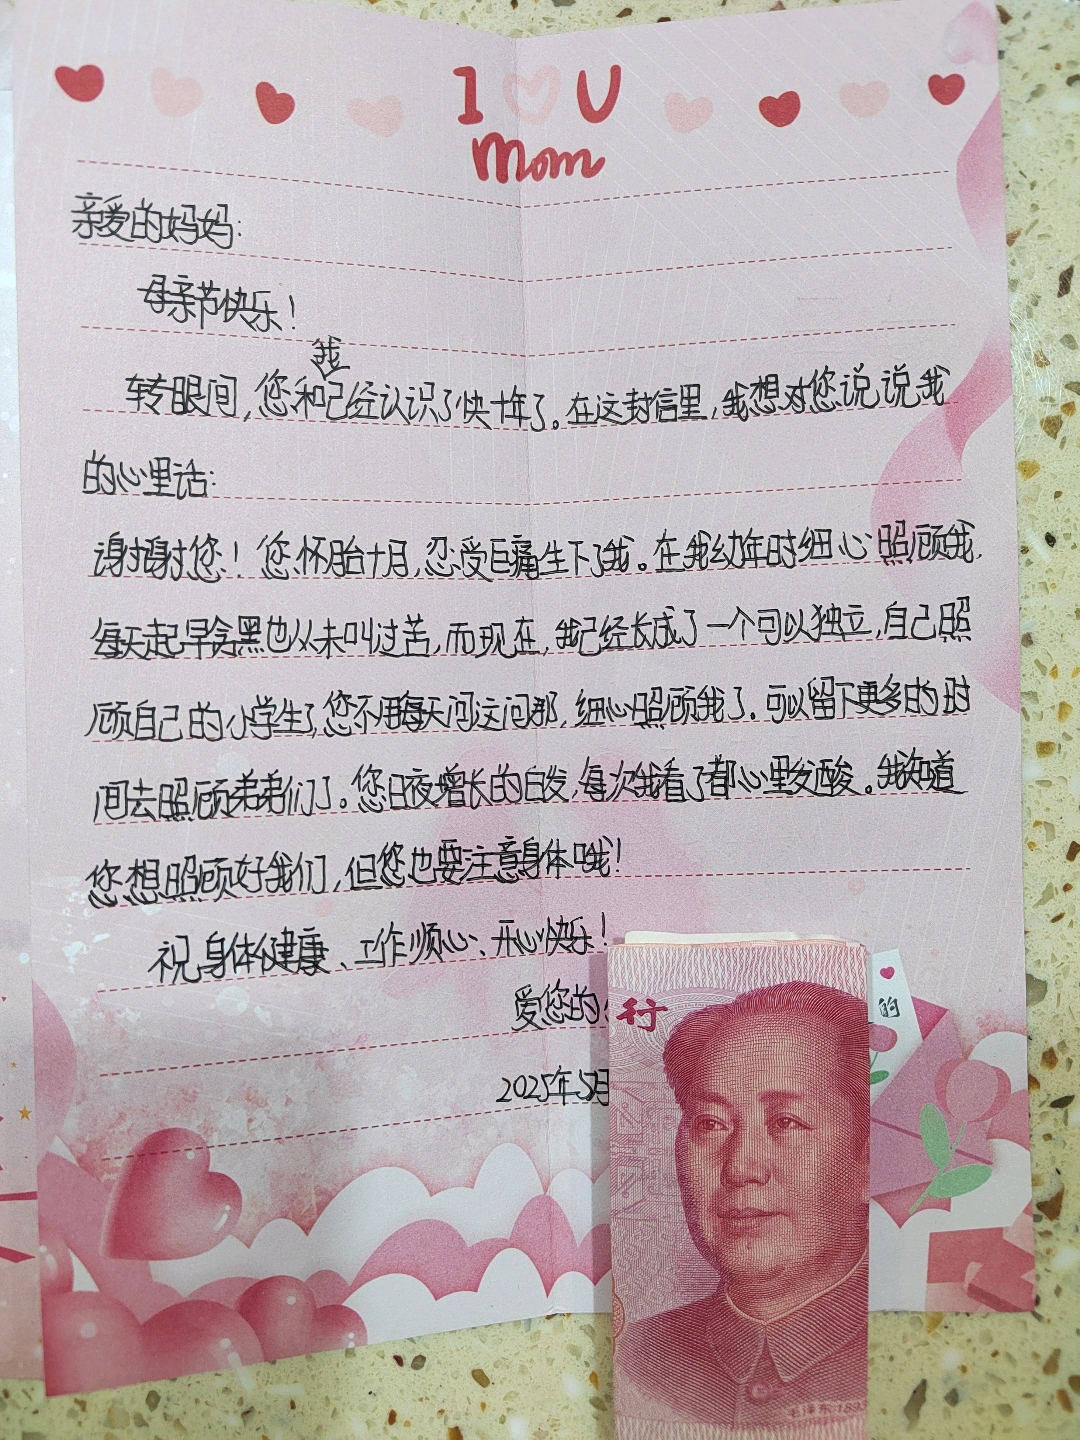 I U
Mom
亲爱的妈妈:
母亲节快乐!
我
转眼间,您和已经认识了快十年了。在这封信里,我想对您说说我
的心里话:
谢谢您!您怀胎十月,忍受巨痛生下了我。在我幼年时细心照顾我,
每天起早贪黑也从未叫过苦,而现在,我已经长成了一个可以独立,自己照
顾自己的小学生了,您不用每天问这问那,细心照顾我了。可以留下更多的时
间去照顾弟弟们了。您日夜增长的白发,每次我看了都心里发酸。我知道
您想照顾好我们,但您也要注意身体哦!
祝身体健康、工作顺心、开心快乐!
爱您的
2025年5月
行
的
毛泽东1893